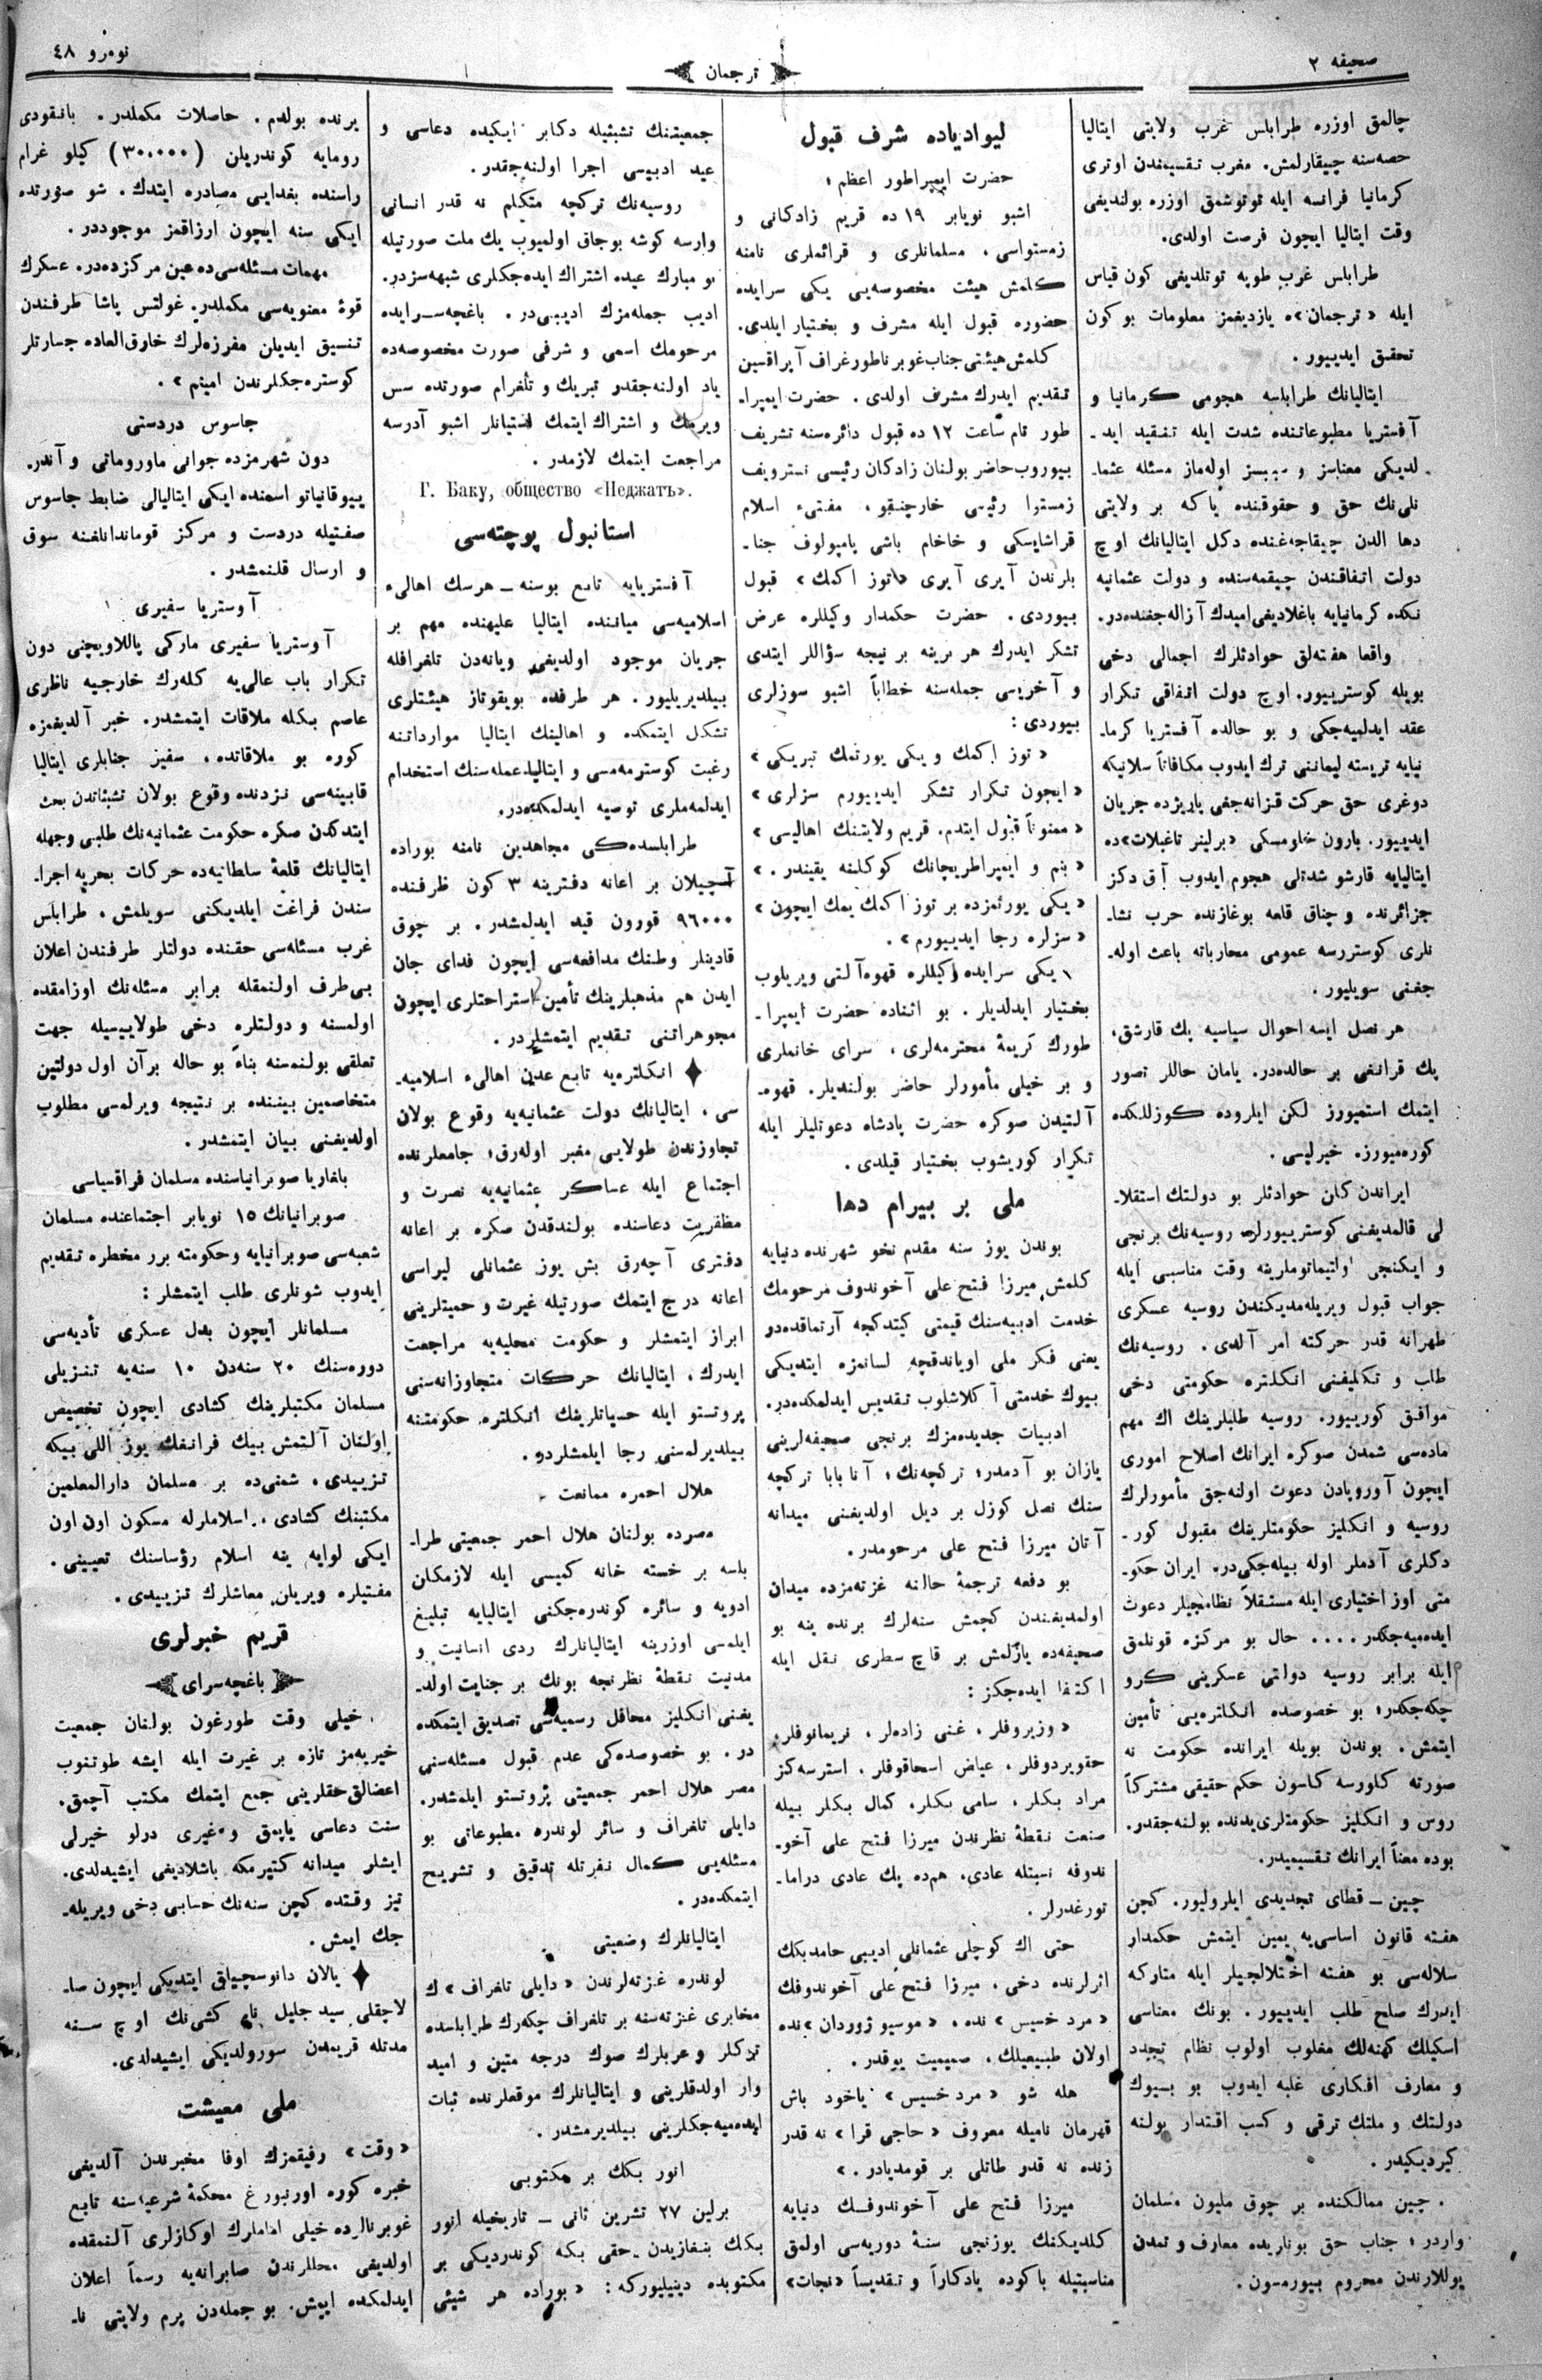 صحیفه ٢
ترجمان
نومرو ٤٨
چالمق اوزره طرابلس غرب ولایتی ایتالیا
حصه‌سنه چیقارلمش. مغرب تقسیمندن اوتری
کرمانیا فرانسه ایله طوتوشمق اوزره بولندیغی
وقت ایتالیا ایچون فرصت اولدی.
طرابلس غرب طوپه توتلدیغی کون قیاس
ایله «ترجمان»ه یازدیغمز معلومات بو کون
تحقق ایدییور.
ایتالیانك طرابلسه هجومی کرمانیا و
آفستریا مطبوعاتنده شدت ایله تنقید اید-
لدیکی معناسز و سببسز اوله‌ماز مسئله عثما-
نلی‌نك حق و حقوقنده یا که بر ولایتی
دها الدن چیقاجه‌غنده دکل ایتالیانك اوچ
دولت اتفاقندن چیقمه‌سنده و دولت عثمانیه
نکده کرمانیایه باغلادیغی امیدك آزاله‌جغنده‌در.
واقعا هفته‌لق حوادثلرك اجمالی دخی
بویله کوستریییور. اوچ دولت اتفاقی تکرار
عقد ایدلمیه‌جکی و بو حالده آفستریا کرما-
نیایه تریسته لیماننی ترك ایدوب مکافاتاً سلانیکه
دوغری حق حرکت قزانه‌جغی پاریژده جریان
ایدییور. بارون خلومسکی «برلینر تاغبلات»ده
ایتالیایه قارشو شدتلی هجوم ایدوب آق دکز
جزائرنده و چناق قلعه بوغازنده حرب نشا-
نلری کوسترسه عمومی محارباته باعث اوله-
جغنی سویلیور.
هر نصل ایسه احوال سیاسیه پك قارشق،
پك قرانغی بر حالده‌در. یامان حاللر تصور
ایتمك استمیورز لکن ایلروده کوزللکده
کوره‌میورز. خیرلیسی.
ایراندن کلن حوادثلر بو دولتك استقلا-
لی قالمدیغنی کوستریییورلر. روسیه‌نك برنجی
و ایکنجی اولتیماتوملرینه وقت مناسبی ایله
جواب قبول ویریله‌مدیکندن روسیه عسکری
طهرانه قدر حرکته امر آلدی. روسیه‌نك
طلب و تکلیفنی انکلتره حکومتی دخی
موافق کورییور. روسیه طلبلرینك اك مهم
ماده‌سی شمدن صوکره ایرانك اصلاح اموری
ایچون آوروپادن دعوت اولنه‌جق مأمورلرك
روسیه و انکلیز حکومتلرینك مقبول کور-
دکلری آدملر اوله بیله‌جکی‌در. ایران حکو-
متی اوز اختیاری ایله مستقلاً نظامجیلر دعوت
ایده‌میه‌جکدر.... حال بو مرکزه قونلمق
ایله برابر روسیه دولتی عسکرینی کرو
چکه‌جکدر؛ بو خصوصده انکلتره‌یی تأمین
ایتمش. بوندن بویله ایرانده حکومت نه
صورته کلورسه کلسون حکم حقیقی مشترکاً
روس و انکلیز حکومتلری یدنده بولنه‌جقدر.
بوده معناً ایرانك تقسیمیدر.
چین - قطای تجدیدی ایلرولیور. کچن
هفته قانون اساسی‌یه یمین ایتمش حکمدار
سلاله‌سی بو هفته اختلالجیلر ایله متارکه
ایدرك صلح طلب ایدییور. بونك معناسی
اسکیلك کهنه‌لك مغلوب اولوب نظام تجدد
و معارف افکاری غلبه ایدوب بو بیوك
دولتك و ملتك ترقی و کسب اقتدار یولنه
کیردیکیدر.
چین ممالکنده بر چوق ملیون مسلمان
واردر؛ جناب حق بونلریده معارف و تمدن
یوللارندن محروم بیورمسون.
لیوادیاده شرف قبول
حضرت ایمپراطور اعظم؛
اشبو نویابر ١٩ ده قریم زادکانی و
زمستواسی، مسلمانلری و قرائملری نامنه
کلمش هیئت مخصوصه‌یی یکی سرایده
حضوره قبول ایله مشرف و بختیار ایلدی.
کلمش هیئتی جناب غوبرناطور غراف آپراقسین
تقدیم ایدرك مشرف اولدی. حضرت ایمپرا-
طور تام ساعت ١٢ ده قبول دائره‌سنه تشریف
بیوروب حاضر بولنان زادکان رئیسی نسترویف
زمستوا رئیسی خارچنقو، مفتیء اسلام
قراشایسکی و خاخام باشی پامپولوف جنا-
بلرندن آیری آیری «توز اکمك» قبول
بیوردی. حضرت حکمدار وکیللره عرض
تشکر ایدرك هر برینه بر نیچه سؤاللر ایتدی
و آخریسی جمله‌سنه خطاباً اشبو سوزلری
بیوردی:
«توز اکمك و یکی یورتمك تبریکی»
«ایچون تکرار تشکر ایدییورم سزلری»
«ممنوناً قبول ایتدم. قریم ولایتنك اهالیسی»
«بنم و ایمپراطریچانك کوکلمنه یقیندر.»
«یکی یورتمزده بر توز اکمك یمك ایچون»
«سزلره رجا ایدییورم».
یکی سرایده وکیللره قهوه‌آلتی ویریلوب
بختیار ایدلدیلر. بو اثناده حضرت ایمپرا-
طورك کریمهٔ محترمه‌لری، سرای خانملری
و بر خیلی مأمورلر حاضر بولندیلر. قهوه-
آلتیدن صوکره حضرت پادشاه دعوتلیلر ایله
تکرار کوریشوب بختیار قیلدی.
ملی بر بیرام دها
بوندن یوز سنه مقدم نخو شهرنده دنیایه
کلمش میرزا فتح علی آخوندوف مرحومك
خدمت ادبیه‌سنك قیمتی کیتدکجه آرتماقده‌در
یعنی فکر ملی اویاندقچه لسانمزه ایتدیکی
بیوك خدمتی آکلاشلوب تقدیس ایدلمکده‌در.
ادبیات جدیده‌مزك برنجی صحیفه‌لرینی
یازان بو آدمدر؛ ترکچه‌نك؛ آنا بابا ترکچه
سنك نصل کوزل بر دیل اولدیغنی میدانه
آتان میرزا فتح علی مرحومدر.
بو دفعه ترجمهٔ حالنه غزته‌مزده میدان
اولمدیغندن کچمش سنه‌لرك برنده ینه بو
صحیفه‌ده یازلمش بر قاچ سطری نقل ایله
اکتفا ایده‌جکز:
«وزیروفلر، غنی زاده‌لر، نریمانوفلر،
حقویردوفلر، عیاض اسحاقوفلر، استرسه‌کز
مراد بکلر، سامی بکلر، کمال بکلر بیله
صنعت نقطهٔ نظرندن میرزا فتح علی آخو-
ندوفه نسبتله عادی، هم‌ده پك عادی دراما-
تورغدرلر.
حتی اك کوچلی عثمانلی ادیبی حامدبکك
اثرلرنده دخی، میرزا فتح علی آخوندوفك
«مرد خسیس» نده، «موسیو ژووردان»نده
اولان طبیعیلك، صمیمیت یوقدر.
هله شو «مرد خسیس» یاخود باش
قهرمان نامیله معروف «حاجی قرا» نه قدر
زنده نه قدر طاتلی بر قومدیادر.»
میرزا فتح علی آخوندوفك دنیایه
کلدیکنك یوزنجی سنهٔ دوریه‌سی اولمق
مناسبتیله باکوده یادکاراً و تقدیساً «نجات»
جمعیتنك تشبثیله دکابر ایکیده دعاسی و
عید ادبیسی اجرا اولنه‌جقدر.
روسیه‌نك ترکچه متکلم نه قدر انسانی
وارسه کوشه بوجاق اولمیوب یك ملت صورتیله
بو مبارك عیده اشتراك ایده‌جکلری شبهه‌سزدر.
ادیب جمله‌مزك ادیبی‌در. باغچه‌سرایده
مرحومك اسمی و شرفی صورت مخصوصه‌ده
یاد اولنه‌جقدر تبریك و تلغرام صورتده سس
ویرمك و اشتراك ایتمك استیانلر اشبو آدرسه
مراجعت ایتمك لازمدر.
Г. Баку, общество «Неджатъ».
استانبول پوچته‌سی
آفستریایه تابع بوسنه - هرسك اهالیء
اسلامیه‌سی میاننده ایتالیا علیهنده مهم بر
جریان موجود اولدیغی ویانه‌دن تلغرافله
بیلدیریلیور. هر طرفده بویقوتاژ هیئتلری
تشکل ایتمکده و اهالینك ایتالیا موارداتنه
رغبت کوسترمه‌مسی و ایتالیا عمله‌سنك استخدام
ایدلمه‌ملری توصیه ایدلمکده‌در.
طرابلسده‌کی مجاهدین نامنه بوراده
آچیلان بر اعانه دفترینه ٣ کون ظرفنده
٩٦٠٠٠ قورون قید ایدلمشدر. بر چوق
قادینلر وطنك مدافعه‌سی ایچون فدای جان
ایدن هم مذهبلرینك تأمین استراحتلری ایچون
مجوهراتنی تقدیم ایتمشلردر.
انکلتره‌یه تابع عدن اهالیء اسلامیه-
سی، ایتالیانك دولت عثمانیه‌یه وقوع بولان
تجاوزندن طولایی مغبر اوله‌رق؛ جامعلرنده
اجتماع ایله عساکر عثمانیه‌یه نصرت و
مظفریت دعاسنده بولندقدن صکره بر اعانه
دفتری آچه‌رق بش یوز عثمانلی لیراسی
اعانه درج ایتمك صورتیله غیرت و حمیتلرینی
ابراز ایتمشلر و حکومت محلیه‌یه مراجعت
ایدرك، ایتالیانك حرکات متجاوزانه‌سنی
پروتستو ایله حسیاتلرینك انکلتره حکومتنه
بیلدیرلمسنی رجا ایلمشلردر.
هلال احمره ممانعت
مصرده بولنان هلال احمر جمعیتی طرا-
بلسه بر خسته خانه کمیسی ایله لازمکلن
ادویه و سائره کوندره‌جکنی ایتالیایه تبلیغ
ایلمسی اوزرینه ایتالیانلرك ردی انسانیت و
مدنیت نقطهٔ نظرنجه بونك بر جنایت اولد-
یغنی انکلیز محافل رسمیه‌سی تصدیق ایتمکده
در. بو خصوصده‌کی عدم قبول مسئله‌سنی
مصر هلال احمر جمعیتی پروتستو ایلمشدر.
دایلی تلغراف و سائر لوندره مطبوعاتی بو
مسئله‌یی کمال نفرتله تدقیق و تشریح
ایتمکده‌در.
ایتالیانلرك وضعیتی
لوندره غزته‌لرندن «دایلی تلغراف»ك
مخابری غزته‌سنه بر تلغراف چکه‌رك طرابلسده
ترکلر و عربلرك صوك درجه متین و امید
وار اولدقلرینی و ایتالیانلرك موقعلرنده ثبات
ایده‌میه‌جکلرینی بیلدیرمشدر.
انور بکك بر مکتوبی
برلین ٢٧ تشرین ثانی - تاریخیله انور
بکك بنغازیدن حقی بکه کوندردیکی بر
مکتوبده دینیلیورکه: «بوراده هر شیئی
یرنده بولدم. حاصلات مکملدر. بانقودی
رومایه کوندریلن (٣٠،٠٠٠) کیلو غرام
راسنده بغدایی مصادره ایتدك. شو صورتده
ایکی سنه ایچون ارزاقمز موجوددر.
مهمات مسئله‌سی‌ده عین مرکزده‌در. عسکرك
قوهٔ معنویه‌سی مکملدر. غولتس پاشا طرفندن
تنسیق ایدیلن مفرزه‌لرك خارق‌العاده جسارتلر
کوستره‌جکلرندن امینم».
جاسوس دردستی
دون شهرمزده جوانی ماوروماتی و آندر.
پیوقانیاتو اسمنده ایکی ایتالیالی ضابط جاسوس
صفتیله دردست و مرکز قوماندانلغنه سوق
و ارسال قلنمشدر.
آوستریا سفیری
آوستریا سفیری مارکی پاللاویچنی دون
تکرار باب عالی‌یه کله‌رك خارجیه ناظری
عاصم بکله ملاقات ایتمشدر. خبر آلدیغمزه
کوره بو ملاقاتده، سفیر جنابلری ایتالیا
قابینه‌سی نزدنده وقوع بولان تشبثاتدن بحث
ایتدکدن صکره حکومت عثمانیه‌نك طلبی وجهله
ایتالیانك قلعهٔ سلطانیه‌ده حرکات بحریه اجرا-
سندن فراغت ایلدیکنی سویلمش، طرابلس
غرب مسئله‌سی حقنده دولتلر طرفندن اعلان
بی‌طرف اولنمقله برابر مسئله‌نك اوزامقده
اولمسنه و دولتلره دخی طولاییسیله جهت
تعلقی بولنمه‌سنه بناءً بو حاله برآن اول دولتین
متخاصمین بیننده بر نتیجه ویرلمسی مطلوب
اولدیغنی بیان ایتمشدر.
بلغاریا صوبرانیاسنده مسلمان فراقسیاسی
صوبرانیانك ١٥ نویابر اجتماعنده مسلمان
شعبه‌سی صوبرانیایه و حکومته برر مخطره تقدیم
ایدوب شونلری طلب ایتمشلر:
مسلمانلر ایچون بدل عسکری تأدیه‌سی
دوره‌سنك ٢٠ سنه‌دن ١٠ سنه‌یه تنزیلی
مسلمان مکتبلرینك کشادی ایچون تخصیص
اولنان آلتمش بیك فرانقك یوز اللی بیکه
تزییدی، شمنی‌ده بر مسلمان دارالمعلمین
مکتبنك کشادی، اسلاملرله مسکون اون اون
ایکی لوایه ینه اسلام رؤساسنك تعیینی.
مفتیلره ویریلن معاشلرك تزییدی.
قریم خبرلری
باغچه‌سرای
خیلی وقت طورغون بولنان جمعیت
خیریه‌مز تازه بر غیرت ایله ایشه طوتنوب
اعضالق حقلرینی جمع ایتمك مکتب آچمق،
سنت دعاسی یاپمق و غیری درلو خیرلی
ایشلر میدانه کتیرمکه باشلادیغی ایشیدلدی.
تیز وقتده کچن سنه‌نك حسابی دخی ویریله-
جك ایمش.
یالان دانوسچیلق ایتدیکی ایچون صا-
لاچقلی سید جلیل نام کشی‌نك اوچ سنه
مدتله قریمدن سورولدیکی ایشیدلدی.
ملی معیشت
«وقت» رفیقمزك اوفا مخبرندن آلدیغی
خبره کوره اورنبورغ محکمهٔ شرعیه‌سنه تابع
غوبرنالرده خیلی اماملرك اوکازلری آلنمقده
اولدیغی محللرندن صابرانه‌یه رسماً اعلان
ایدلمکده ایمش. بو جمله‌دن پرم ولایتی نا-